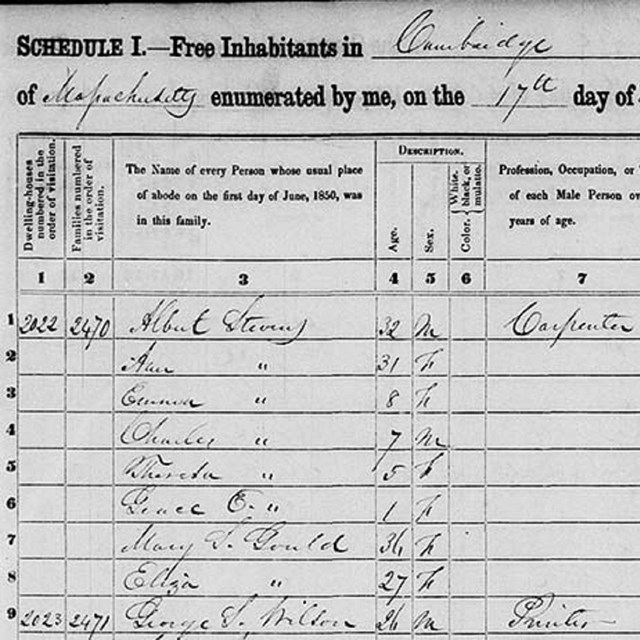 SCHEDULE I.—Free Inhabitants in Cambridge
of Massachusetts enumerated by me, on the 17th day of
Dwelling-houses numbered in the order of visitation.
Families numbered in the order of visitation.
The Name of every Person whose usual place
of abode on the first day of June, 1850, was
in this family.
DESCRIPTION.
Age.
Sex.
Color. { White, black, or mulatto.
Profession, Occupation, or
of each Male Person ov
years of age.
1 2 3 4 5 6 7
1 2022 2470 Albert Stevens 32 M Carpenter
2 Ann " 31 F
3 Emma " 8 F
4 Charles " 7 M
5 Theresa " 5 F
6 Grace E. " 1 F
7 Mary S. Gould 36 F
8 Eliza " 27 F
9 2023 2471 George S. Wilson 26 M Printer